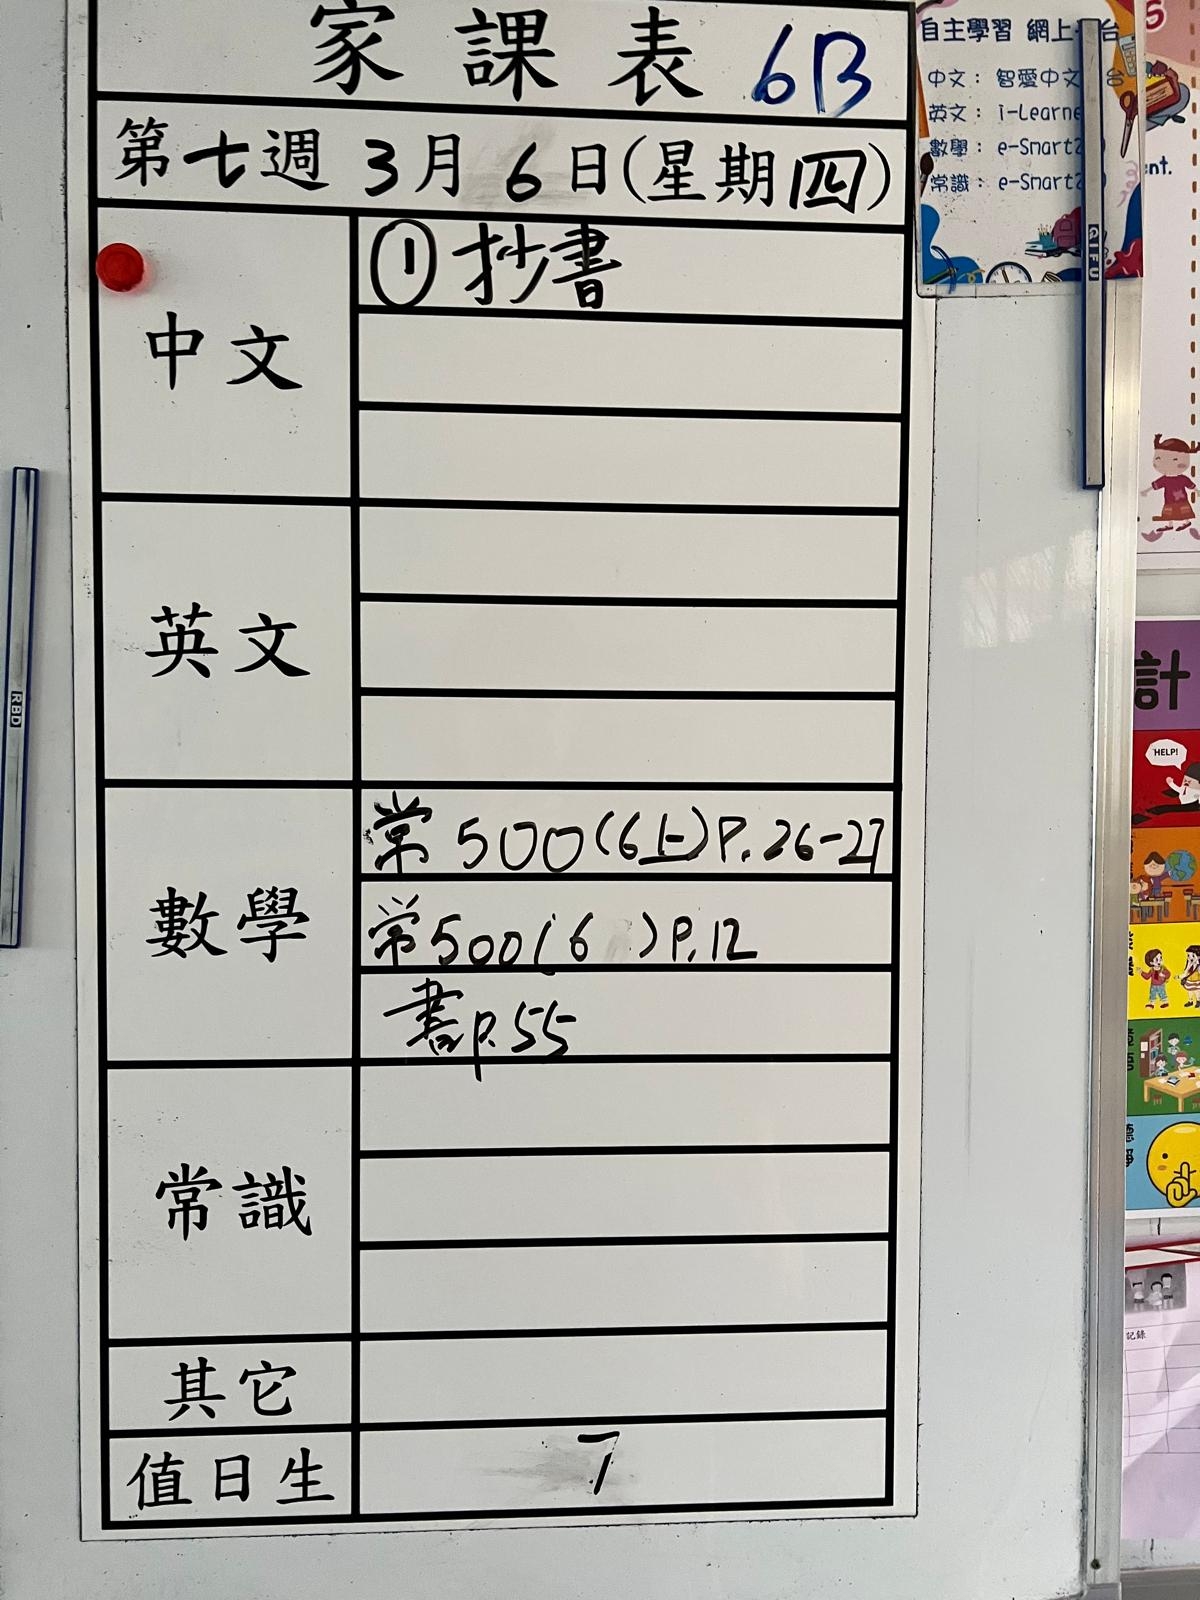 家課表 6B
第七週 3月6日(星期四)
中文
①抄書
英文
數學
常 500(6上)P.26-27
常500(6 )P.12
書P.55
常識
其它
值日生
7
自主學習 網上 台
中文: 智愛中文 台
英文: i-Learne
數學: e-Smart
常識: e-Smart
GIFU
RBD
nt.
計
HELP!
記錄